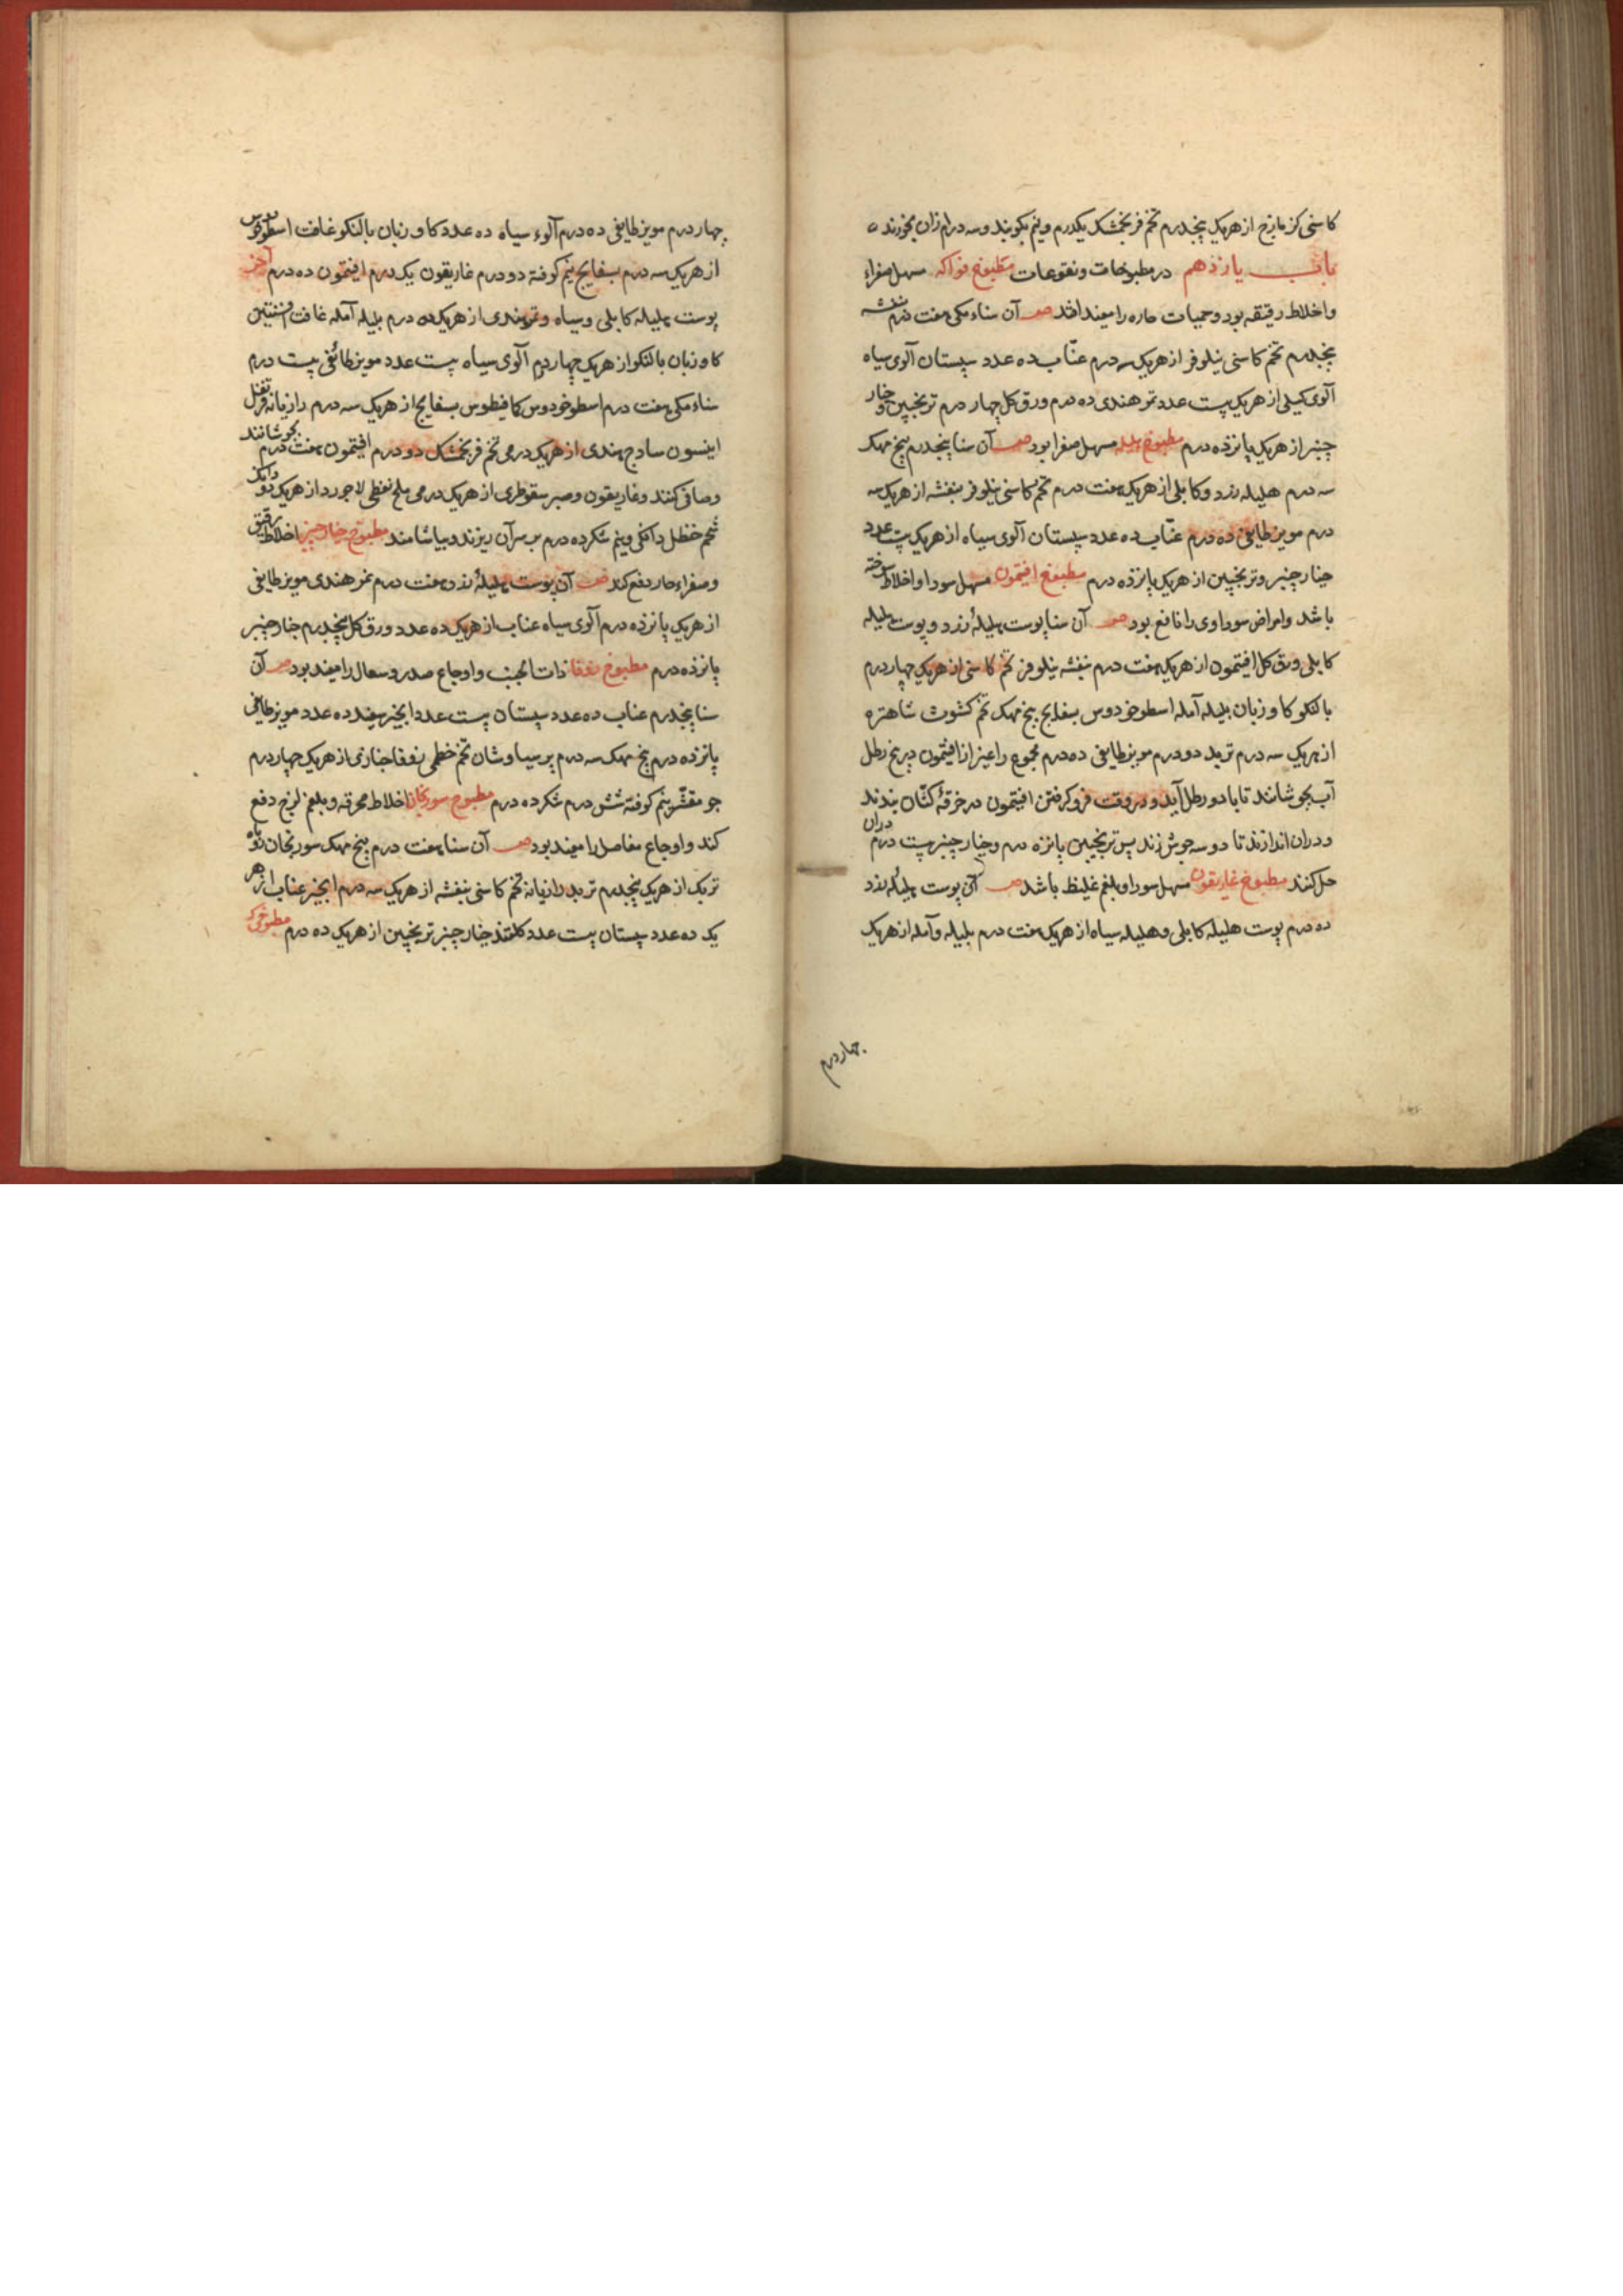 کاسنی کزمازج از هریک پنجدرم تخم فرنجمشک یکدرم و نیم بکوبند و سه درم ازان بخورند
باب یازدهم در مطبوخات و نقوعات مطبوخ فواکه مسهل صفراء
و اخلاط رقیقه بود و حمیات حاره را مفید افتد صـ آن سناء مکی هفت درم بنفشه
پنجدرم تخم کاسنی نیلوفر از هریک سه درم عنّاب ده عدد سپستان آلوی سیاه
آلوی کیلی از هریک بیست عدد تمر هندی ده درم ورق کل چهار درم ترنجبین و خیار
چنبر از هریک پانزده درم مطبوخ هلیله مسهل صفرا بود صـ آن سنا پنجدرم بیخ مهک
سه درم هلیله زرد و کابلی از هریک هفت درم تخم کاسنی نیلوفر بنفشه از هریک سه
درم مویز طایفی ده درم عنّاب ده عدد سپستان آلوی سیاه از هریک بیست عدد
خیار چنبر و ترنجبین از هریک پانزده درم مطبوخ افتیمون مسهل سودا و اخلاط سوخته
باشد و امراض سوداوی را نافع بود صـ آن سنا پوست هلیلهٔ زرد و پوست هلیله
کابلی ورق کل افتیمون از هریک هفت درم بنفشه نیلوفر تخم کاسنی از هریک چهار درم
بالنکو کاو زبان بلیله آمله اسطوخودوس بسفایج بیخ مهک تخم کشوث شاهتره
از هریک سه درم تربد دو درم مویز طایفی ده درم مجموع را غیر از افتیمون در پنج رطل
آب بجوشانند تا با دو رطل آید و در وقت فرو کرفتن افتیمون در خرقهٔ کتّان بندند
و دران اندازند تا دو سه جوش زند پس ترنجبین پانزده درم و خیار چنبر بیست درم دران
حل کنند مطبوخ غاریقون مسهل سودا و بلغم غلیظ باشد صـ آن پوست هلیلهٔ زرد
ده درم پوست هلیله کابلی و هلیله سیاه از هریک هفت درم بلیله و آمله از هریک
چهار درم
چهار درم مویز طایفی ده درم آلوء سیاه ده عدد کاو زبان بالنکو غافت اسطوخودوس
از هریک سه درم بسفایج نیم کوفته دو درم غاریقون یک درم افتیمون ده درم آخر
پوست هلیله کابلی و سیاه و تمر هندی از هریک ده درم بلیله آمله غافت افسنتین
کاو زبان بالنکو از هریک چهار درم آلوی سیاه بیست عدد مویز طائفی بیست درم
سناء مکی هفت درم اسطوخودوس کمافیطوس بسفایج از هریک سه درم رازیانه قرنفل
انیسون سادج هندی از هریک درمی تخم فرنجمشک دو درم افتیمون هفت درم بجوشانند
و صافی کنند و غاریقون و صبر سقوطری از هریک درمی ملح نفطی لاجورد از هریک دو دانک
شحم حنظل دانکی و نیم شکر ده درم بر سر آن ریزند و بیاشامند مطبوخ خیار چنبر اخلاط رقیق
و صفراء حار دفع کند صـ آن پوست هلیلهٔ زرد هفت درم تمر هندی مویز طایفی
از هریک پانزده درم آلوی سیاه عناب از هریک ده عدد ورق کل پنجدرم خیار چنبر
پانزده درم مطبوخ زوفا ذات الجنب و اوجاع صدر و سعال را مفید بود صـ آن
سنا پنجدرم عناب ده عدد سپستان بیست عدد انجیر سفید ده عدد مویز طایفی
پانزده درم بیخ مهک سه درم پرسیاوشان تخم خطمی زوفا خبازی از هریک چهار درم
جو مقشّر نیم کوفته شش درم شکر ده درم مطبوخ سورنجان اخلاط محرقه و بلغم لزج دفع
کند و اوجاع مفاصل را مفید بود صـ آن سنا هفت درم بیخ مهک سورنجان بوزیدان
تربک از هریک پنجدرم تربد رازیانه تخم کاسنی بنفشه از هریک سه درم انجیر عناب از هر
یک ده عدد سپستان بیست عدد کلقند خیار چنبر ترنجبین از هریک ده درم مطبوخی